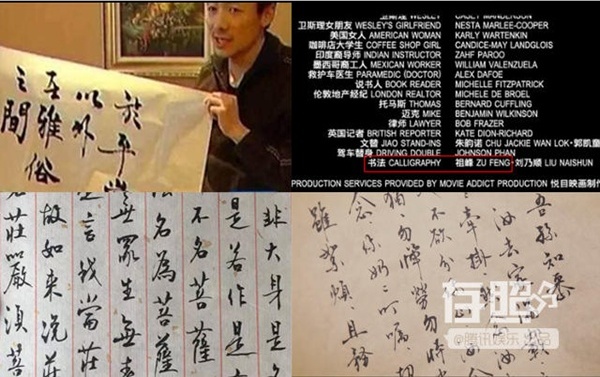 於平
以外
在雅俗
之間
卫斯理 WESLEY CASEY MANDERSON
卫斯理女朋友 WESLEY'S GIRLFRIEND NESTA MARLEE-COOPER
美国女人 AMERICAN WOMAN KARLY WARTENKIN
咖啡店大学生 COFFEE SHOP GIRL CANDICE-MAY LANGLOIS
印度裔导师 INDIAN INSTRUCTOR ZAHF PAROO
墨西哥裔工人 MEXICAN WORKER WILLIAM VALENZUELA
救护车医生 PARAMEDIC (DOCTOR) ALEX DAFOE
说书人 BOOK READER MICHELLE FITZPATRICK
伦敦地产经纪 LONDON REALTOR MICHELE DE BROEL
托马斯 THOMAS BERNARD CUFFLING
迈克 MIKE BENJAMIN WILKINSON
律师 LAWYER BOB FRAZER
英国记者 BRITISH REPORTER KATE DION-RICHARD
文替 JIAO STAND-INS 朱韵诺 CHU JACKIE WAN LOK·郭凯童
驾车替身 DRIVING DOUBLE JOHNSON PHAN
书法 CALLIGRAPHY 祖峰 ZU FENG·刘乃顺 LIU NAISHUN
PRODUCTION SERVICES PROVIDED BY MOVIE ADDICT PRODUCTION 悦目映画制作
非大身是名
是若作是
不名菩薩
名為菩薩
無眾生無壽
言我當莊
故如来说莊
名莊嚴須菩
吾孫知悉
汝去家
牵掛
不欲
勿憚勞勿時
念你奶二叮嘱切
雖繁頻且
存照
@腾讯娱乐 出品